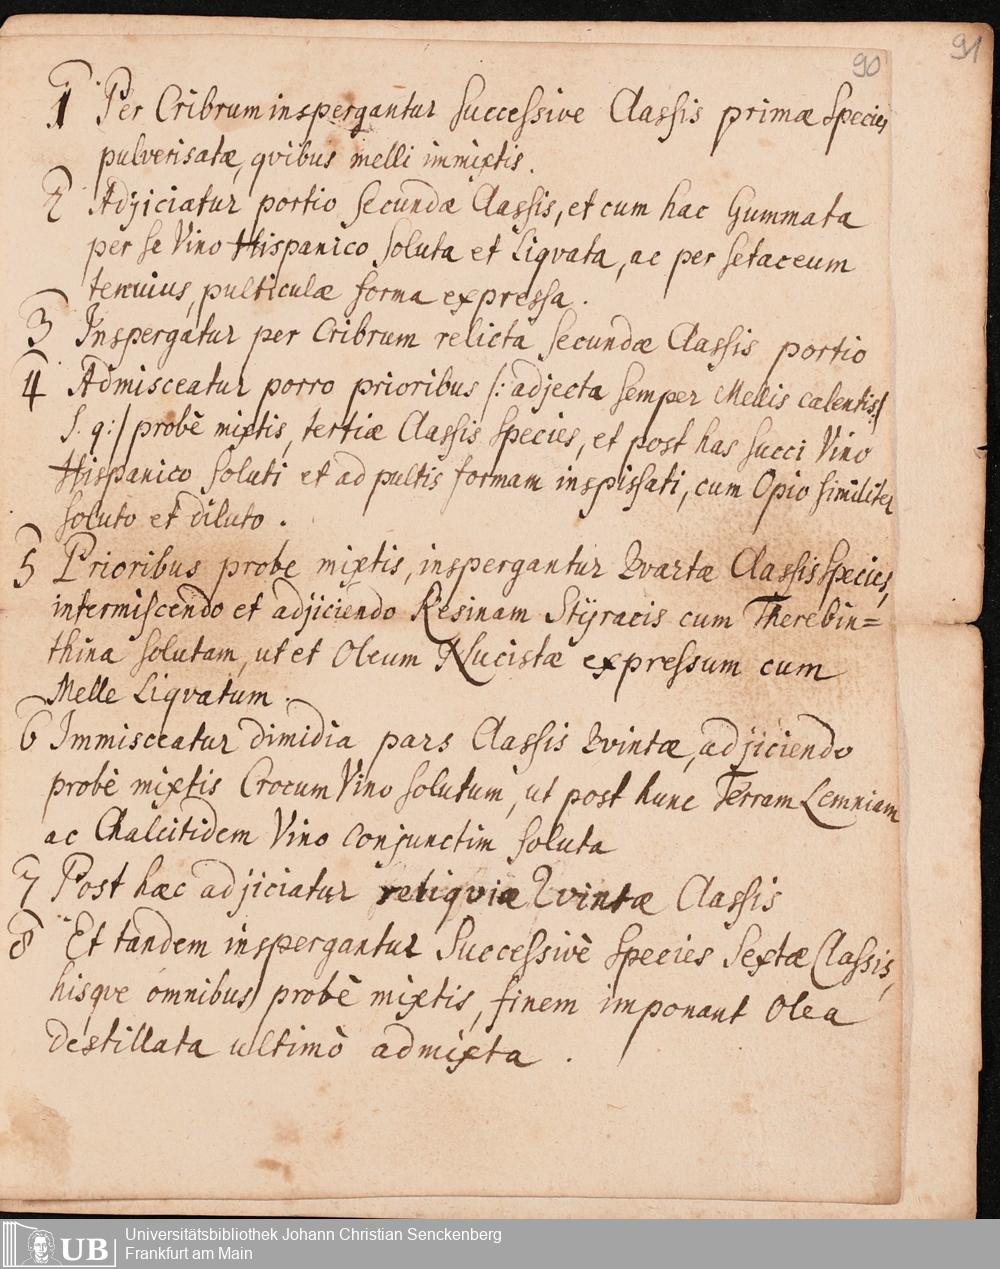 90
91
1 Per Cribrum inspergantur successive Classis primæ Species
pulverisatæ, qvibus melli immixtis.
2 Adjiciatur portio secundæ Classis, et cum hac Gummata
per se Vino Hispanico soluta et liqvata, ac per setaceum
tenuius, pulticulæ forma expressa.
3 Inspergatur per Cribrum relicta secundæ Classis portio
4 Admisceatur porro prioribus /: adjecta semper Mellis calentis
S. q: / probè mixtis, tertiæ Classis species, et post has succi Vino
Hispanico soluti et ad pultis formam inspissati, cum Opio similiter
soluto et diluto.
5 Prioribus probe mixtis, inspergantur Qvartæ Classis Species,
intermiscendo et adjiciendo Resinam Styracis cum Therebin=
thina solutam, ut et Oleum Nucistæ expressum cum
Melle Liqvatum.
6 Immisceatur dimidia pars Classis Qvintæ, adjiciendo
probè mixtis Crocum Vino solutum, ut post hunc Terram Lemniam
ac Chalcitidem Vino conjunctim soluta
7 Post hæc adjiciatur reliqviæ Qvintæ Classis
8 Et tandem inspergantur Successivè species Sextæ Classis,
hisqve omnibus probè mixtis, finem imponant Olea
destillata ultimò admixta.
UB
Universitätsbibliothek Johann Christian Senckenberg
Frankfurt am Main